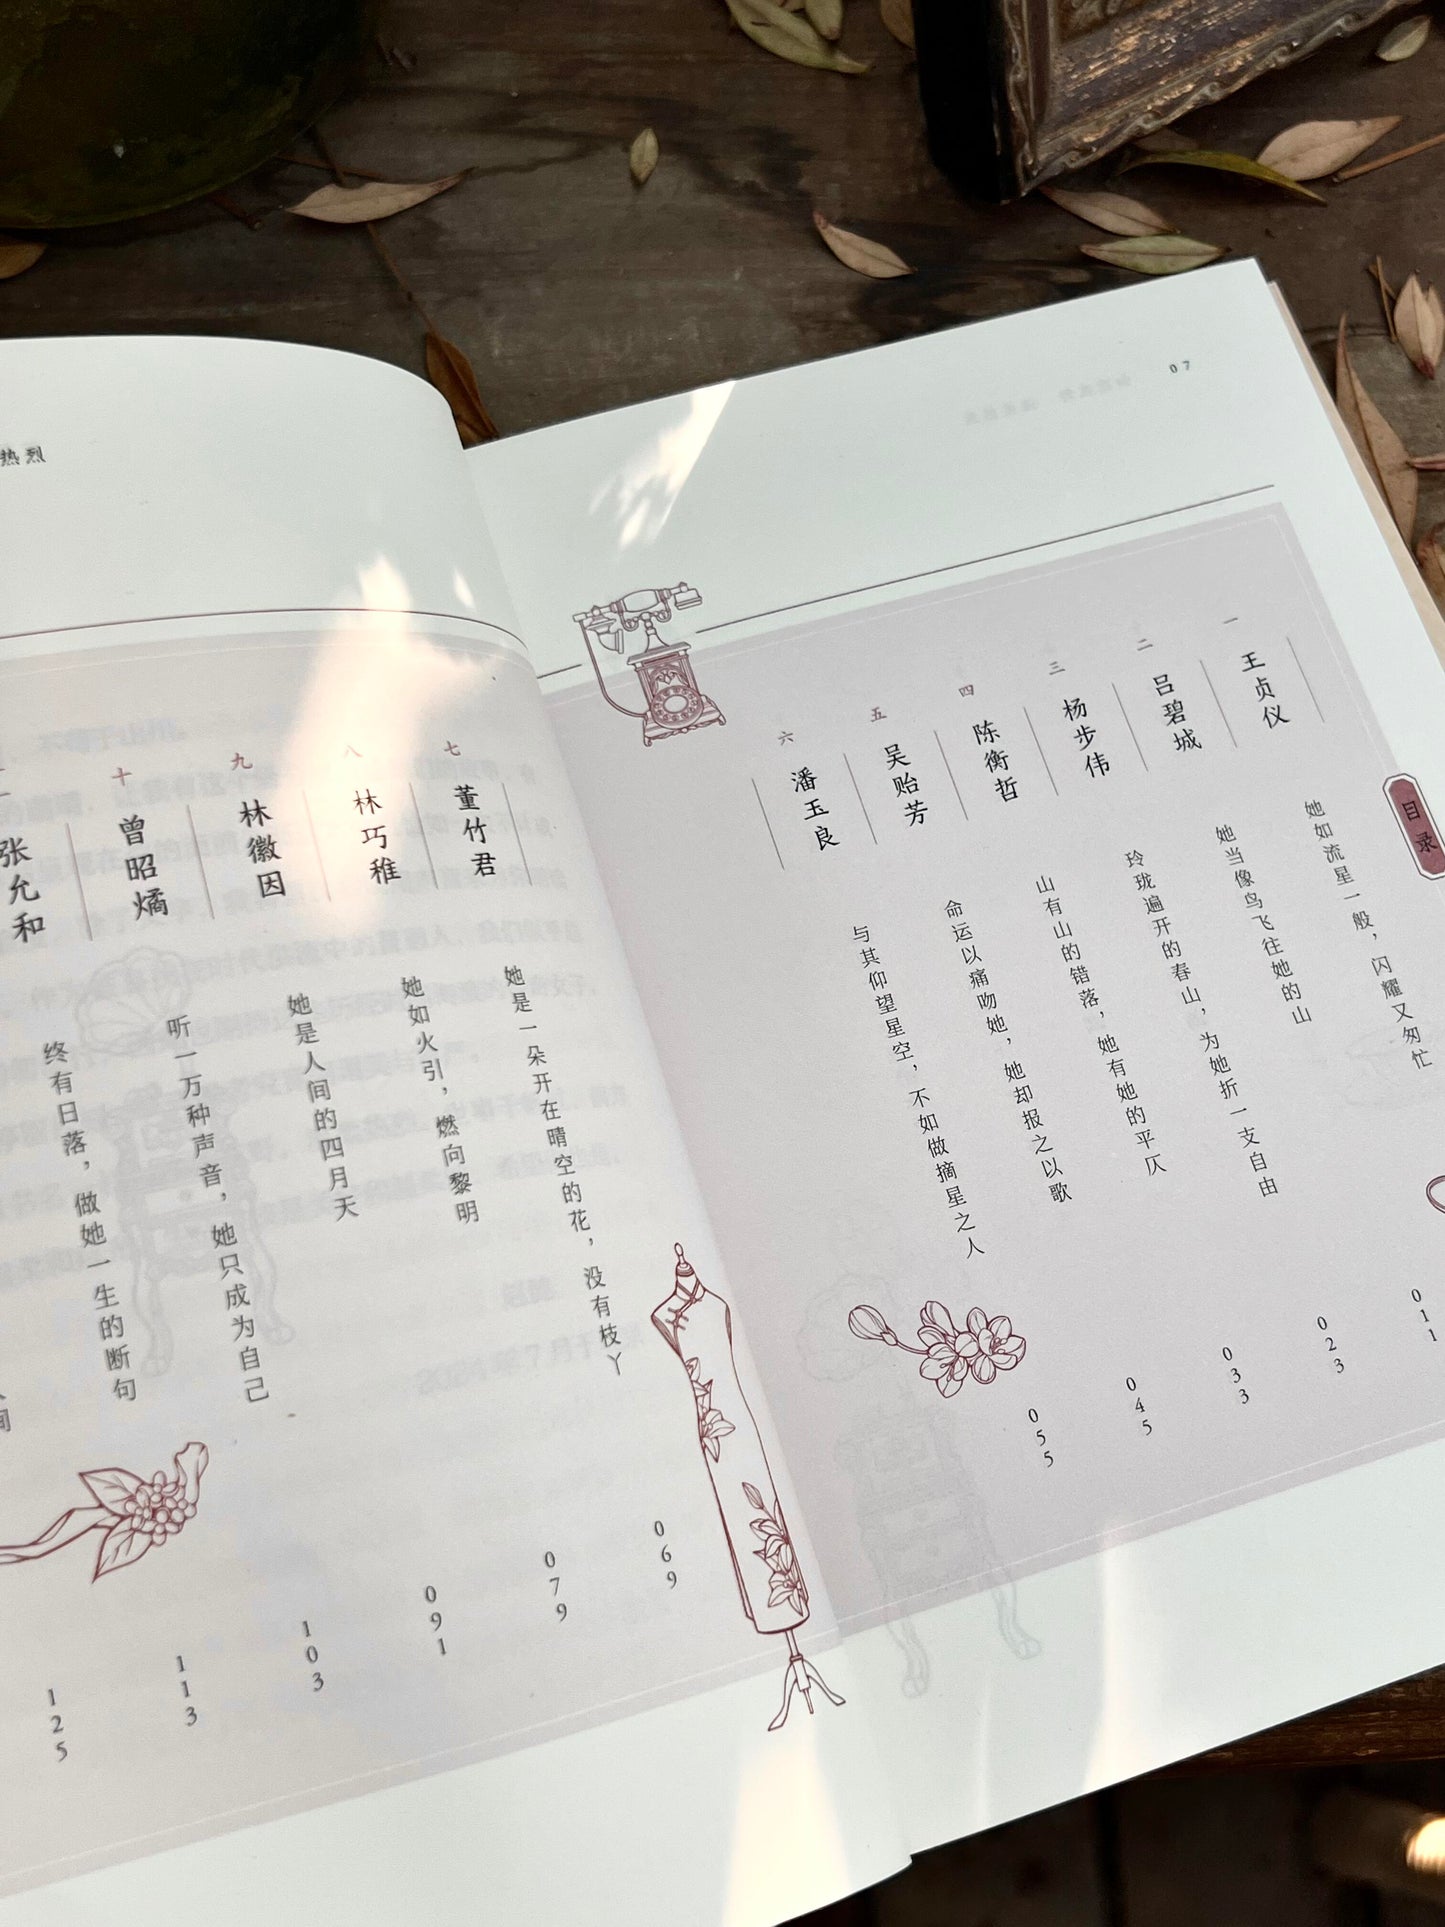 07
目录
一
王贞仪
她如流星一般，闪耀又匆忙
二
吕碧城
她当像鸟飞往她的山
011
三
杨步伟
玲珑遍开的春山，为她折一支自由
023
四
陈衡哲
山有山的错落，她有她的平仄
033
五
吴贻芳
命运以痛吻她，她却报之以歌
045
六
潘玉良
与其仰望星空，不如做摘星之人
055
热烈
七
董竹君
她是一朵开在晴空的花，没有枝丫
069
八
林巧稚
她如火引，燃向黎明
079
九
林徽因
她是人间的四月天
091
十
曾昭燏
听一万种声音，她只成为自己
103
张允和
终有日落，做她一生的断句
113
125